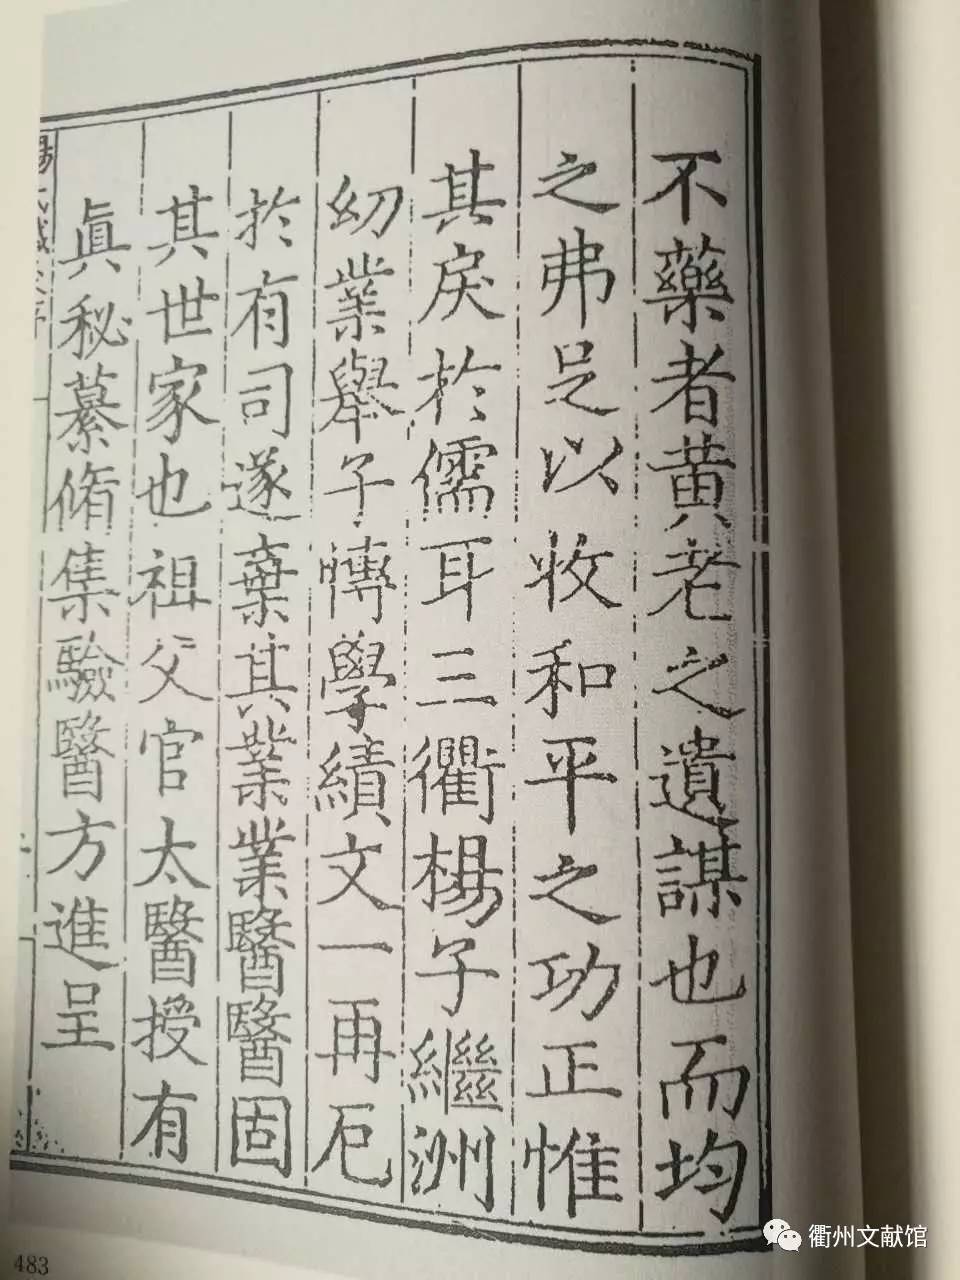 不藥者黃老之遺謀也而均
之弗足以收和平之功正惟
其戾於儒耳三衢楊子繼洲
幼業舉子博學績文一再厄
於有司遂棄其業業醫醫固
其世家也祖父官太醫授有
眞秘纂脩集驗醫方進呈
483
衢州文献馆